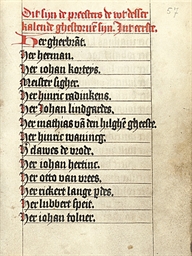 57
Dit syn de preesters de vte desser
kalende ghestoruē syn. Int erste.
Her gherbrāt.
Her herman.
Her iohan korteys.
Meister sigher.
Her hinric radinkens.
Her Johan lindgardes.
Her mathias vā den hilghē gheeste.
Her hinric
N clawes de vrode.
Her iohan hertinc.
Her otto van vrees.
Her rickert lange ydes.
Her lubbert speit.
Her iohan tolner.